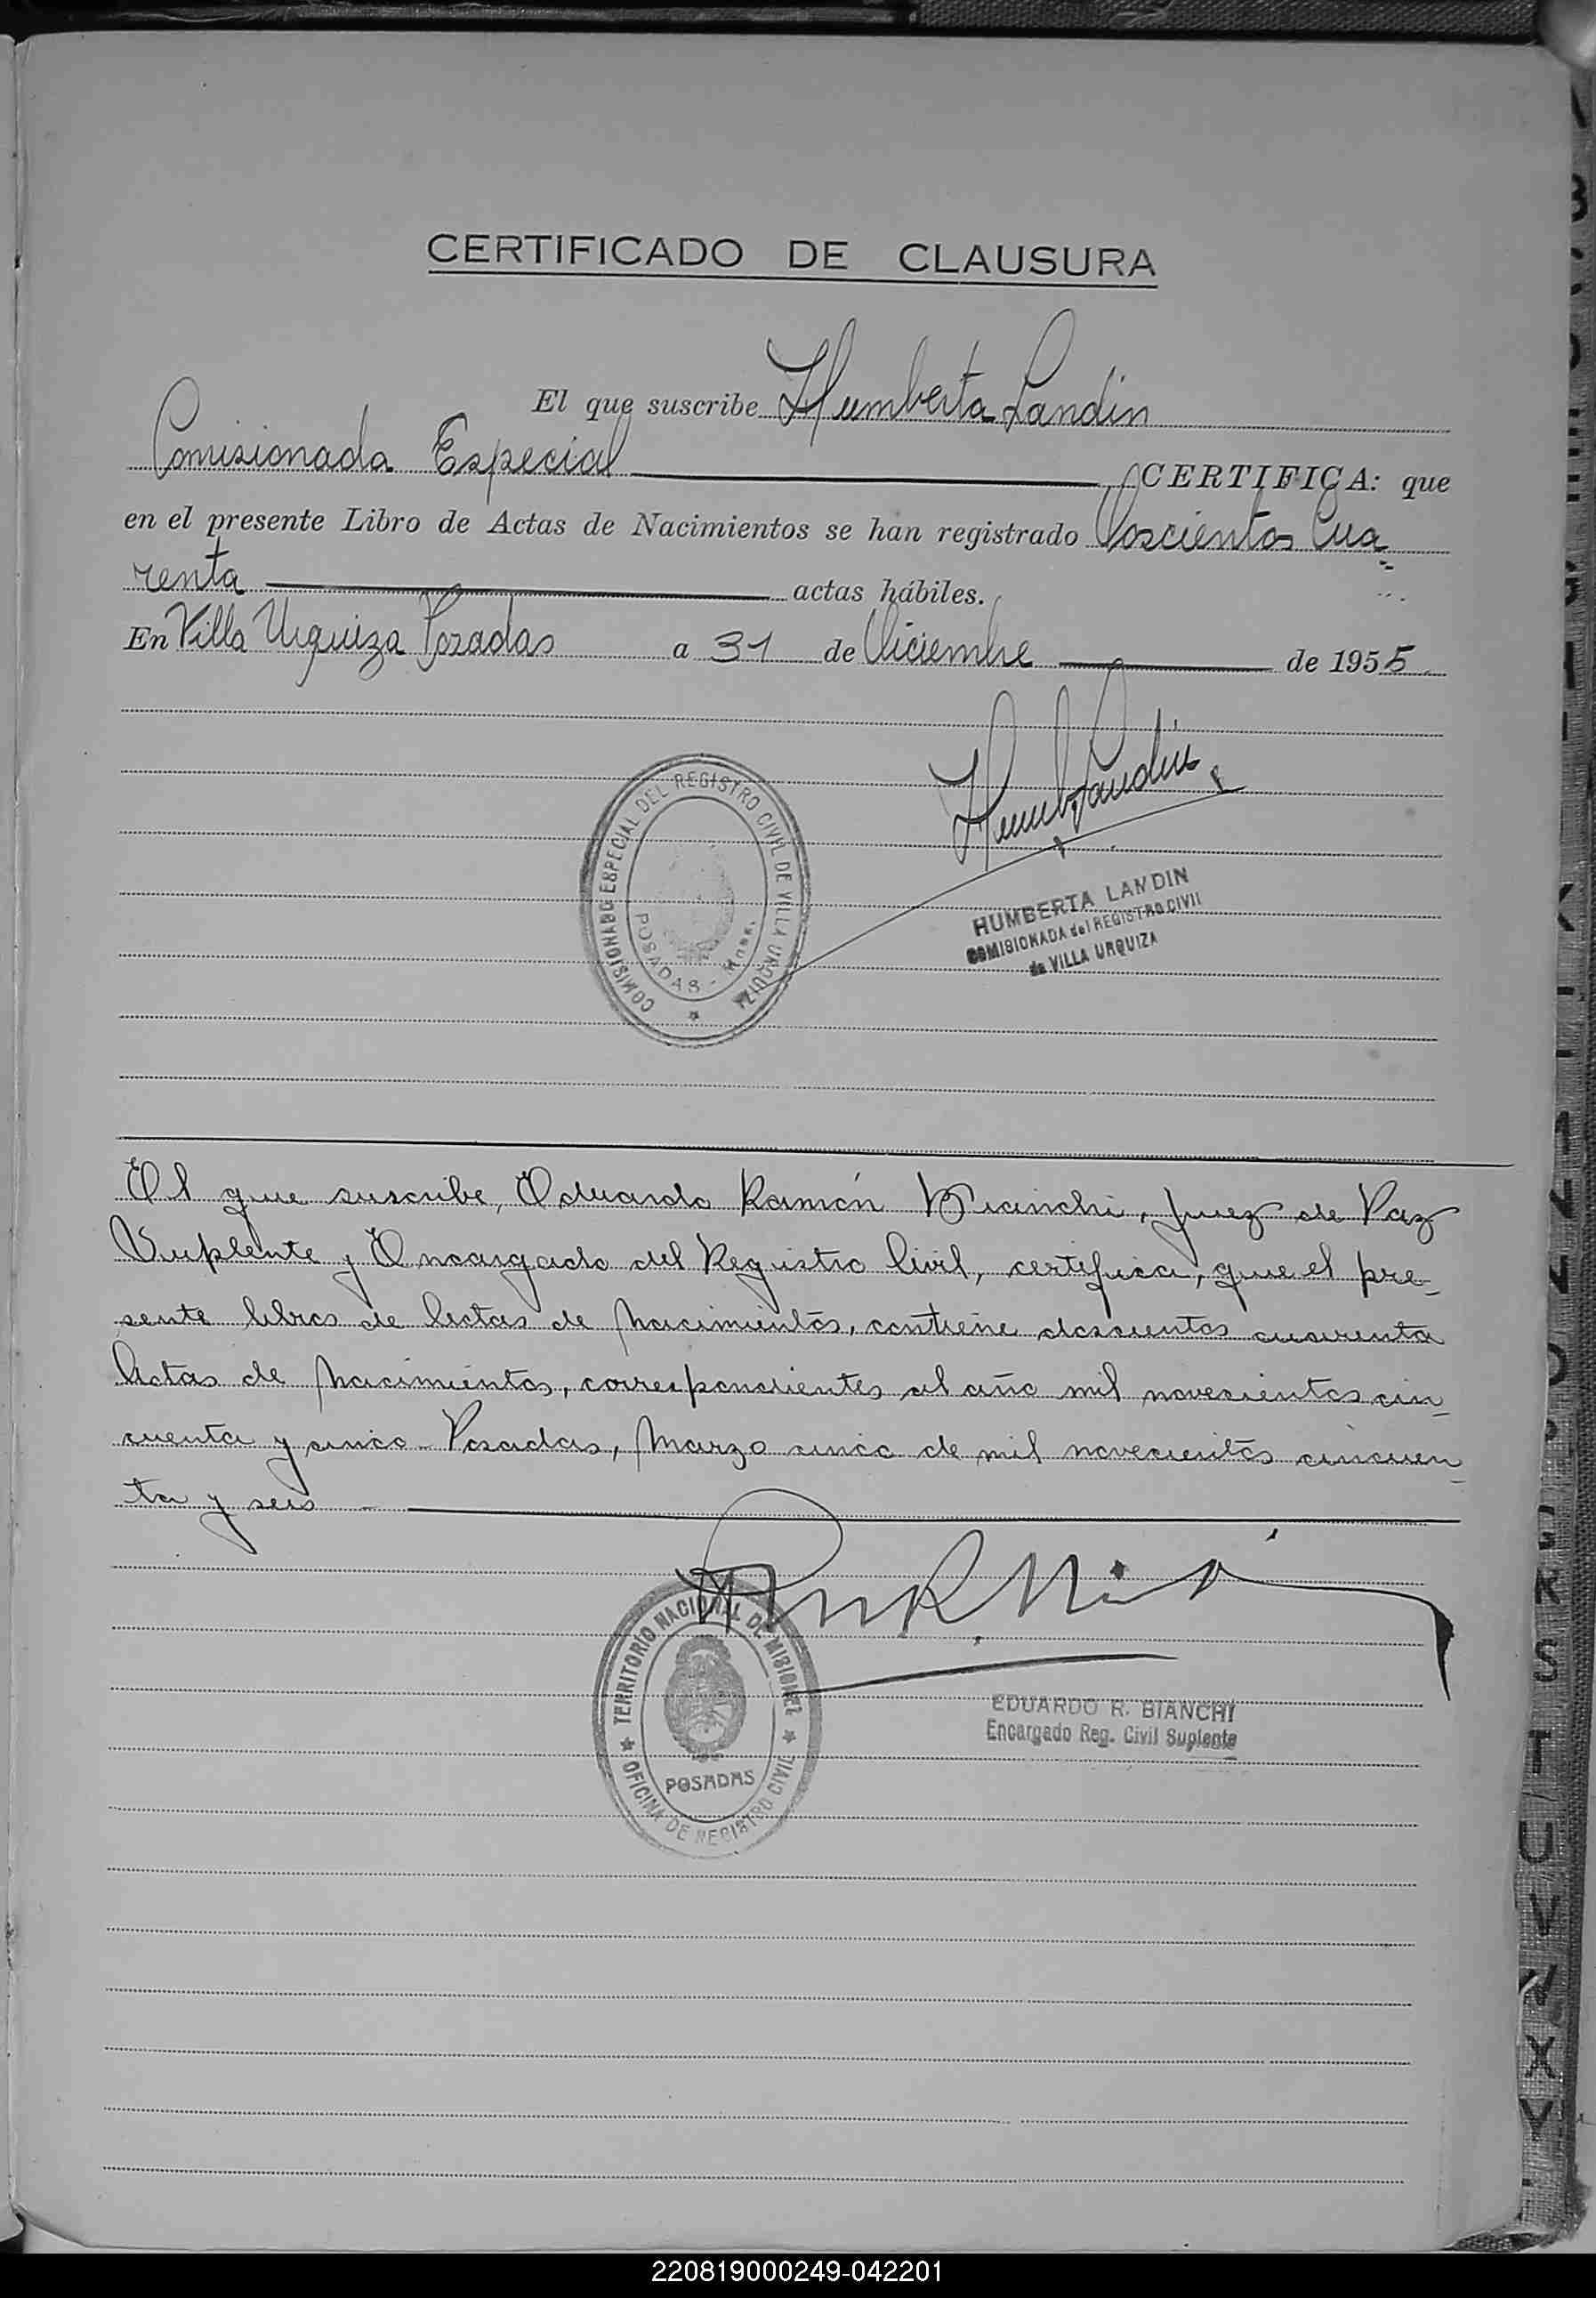 CERTIFICADO DE CLAUSURA
El que suscribe Humberta Landin
Comisionada Especial CERTIFICA: que
en el presente Libro de Actas de Nacimientos se han registrado Doscientos Cua-
renta actas hábiles.
En Villa Urquiza Posadas a 31 de Diciembre de 1955
Humb Landin
COMISIONADO ESPECIAL DEL REGISTRO CIVIL DE VILLA URQUIZA
POSADAS - Mnes.
HUMBERTA LANDIN
COMISIONADA del REGISTRO CIVIL
de VILLA URQUIZA
El que suscribe, Eduardo Ramón Bianchi, Juez de Paz
Suplente y Encargado del Registro Civil, certifica, que el pre-
sente libro de Actas de Nacimientos, contiene doscientos cuarenta
Actas de Nacimientos, correspondientes al año mil novecientos cin-
cuenta y cinco - Posadas, Marzo cinco de mil novecientos cincuen-
ta y seis -
TERRITORIO NACIONAL DE MISIONES
POSADAS
OFICINA DE REGISTRO CIVIL
EDUARDO R. BIANCHI
Encargado Reg. Civil Suplente
R
S
T
U
V
X
Y
220819000249-042201